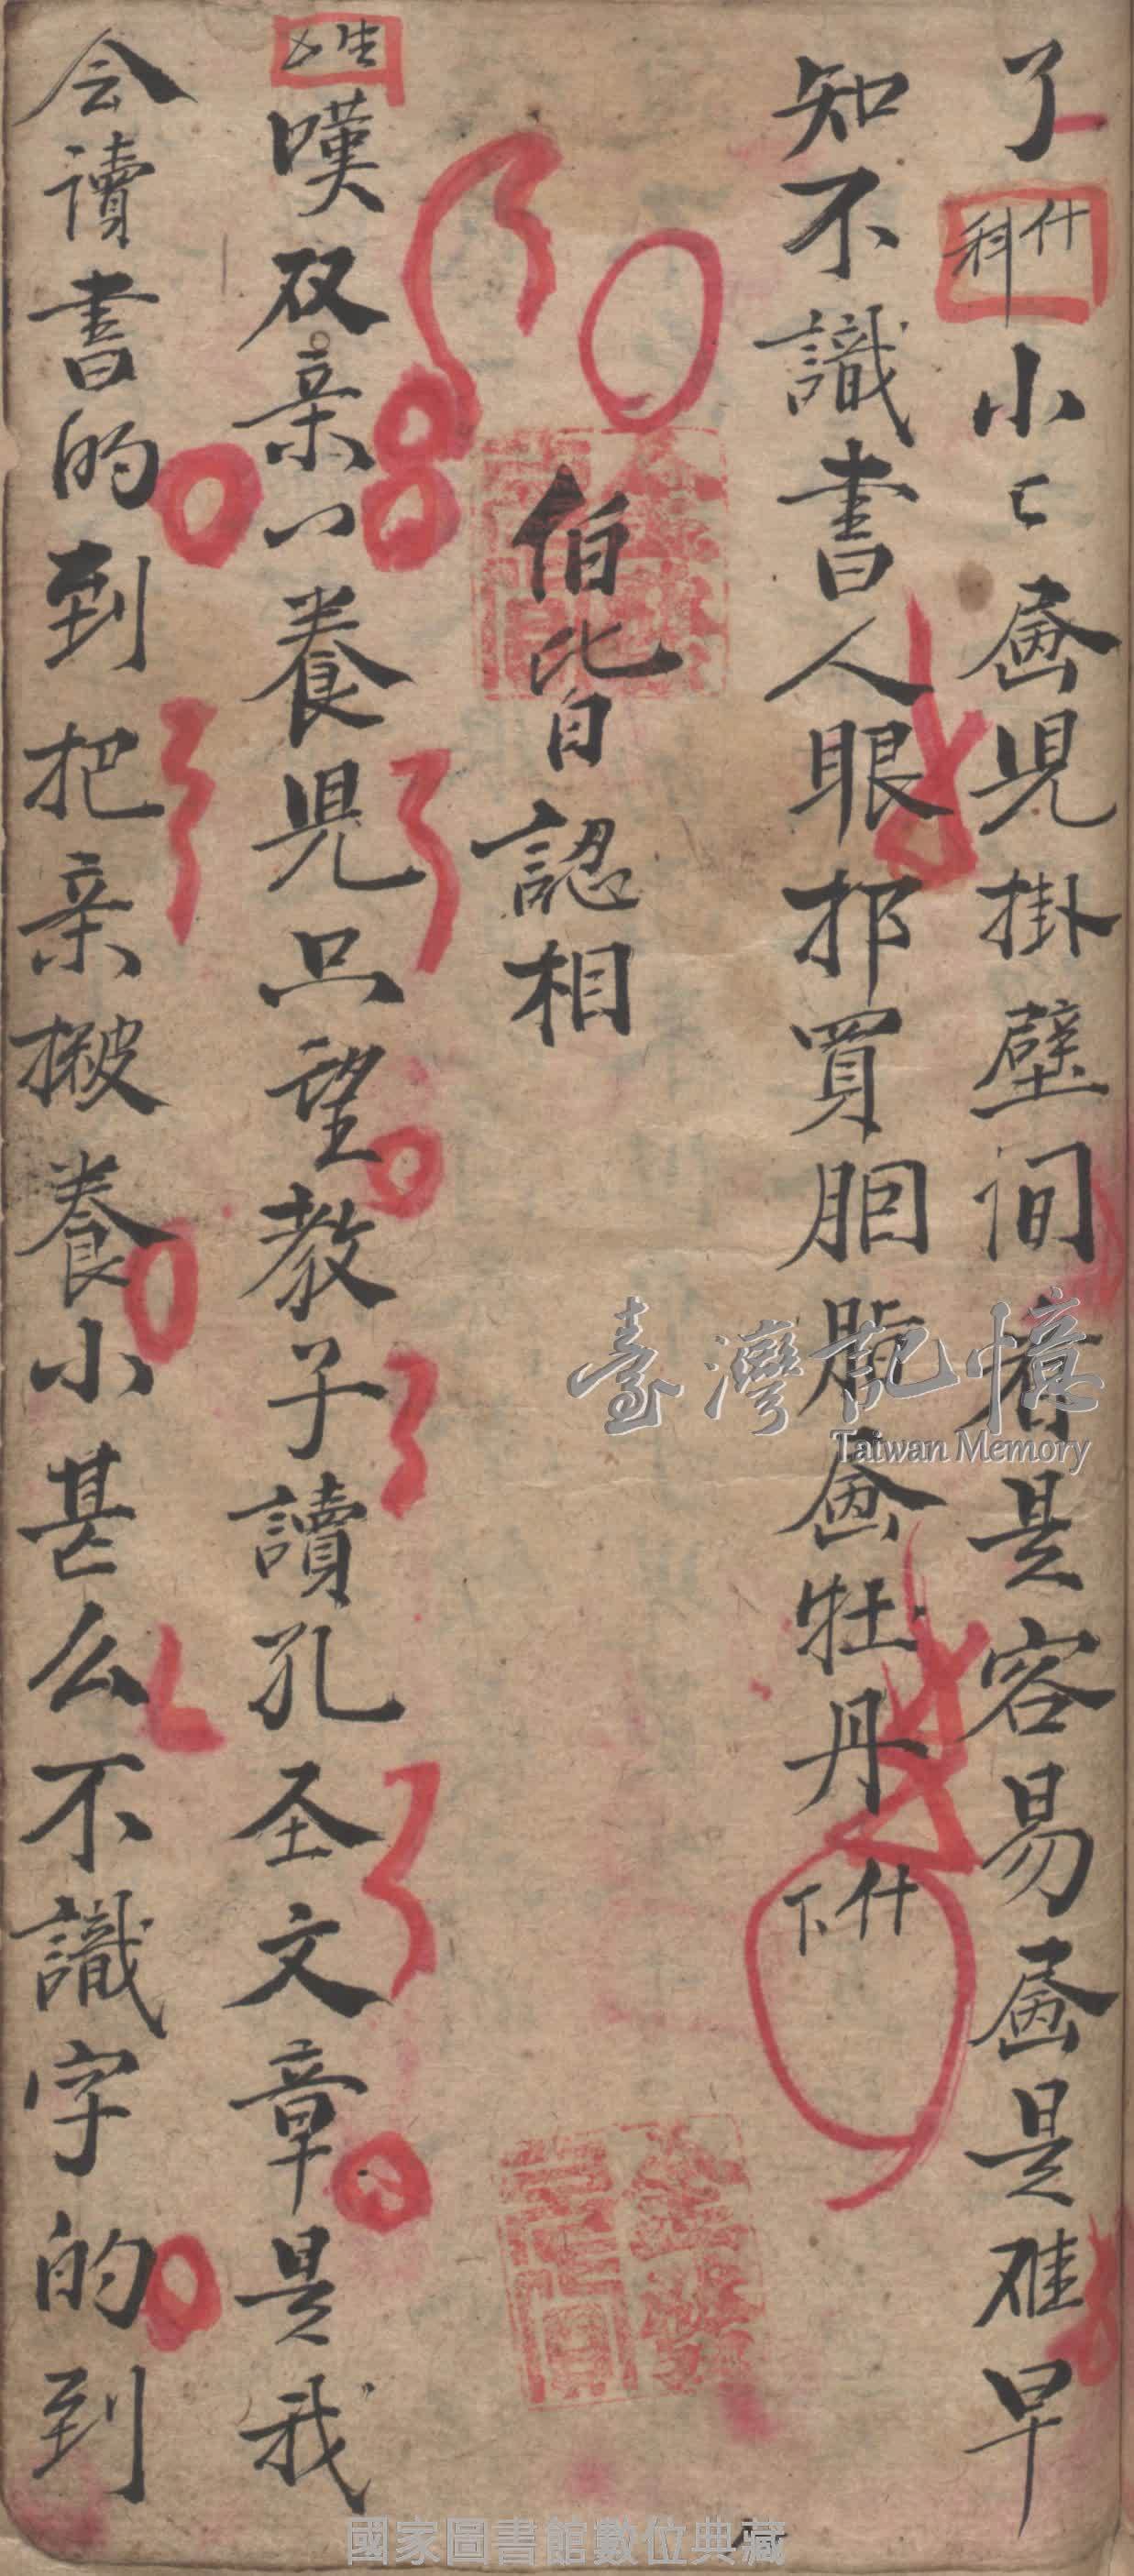 了 什科 小匕畵児掛壁间看是容易畵是难早
知不識書人眼扔買胭脂畵牡丹 什下
伯皆認相
姓又 嘆双亲〻養児只望教子讀孔圣文章是我
会讀書的到把亲撇養小甚么不識字的到
臺灣記憶
Taiwan Memory
國家圖書館數位典藏